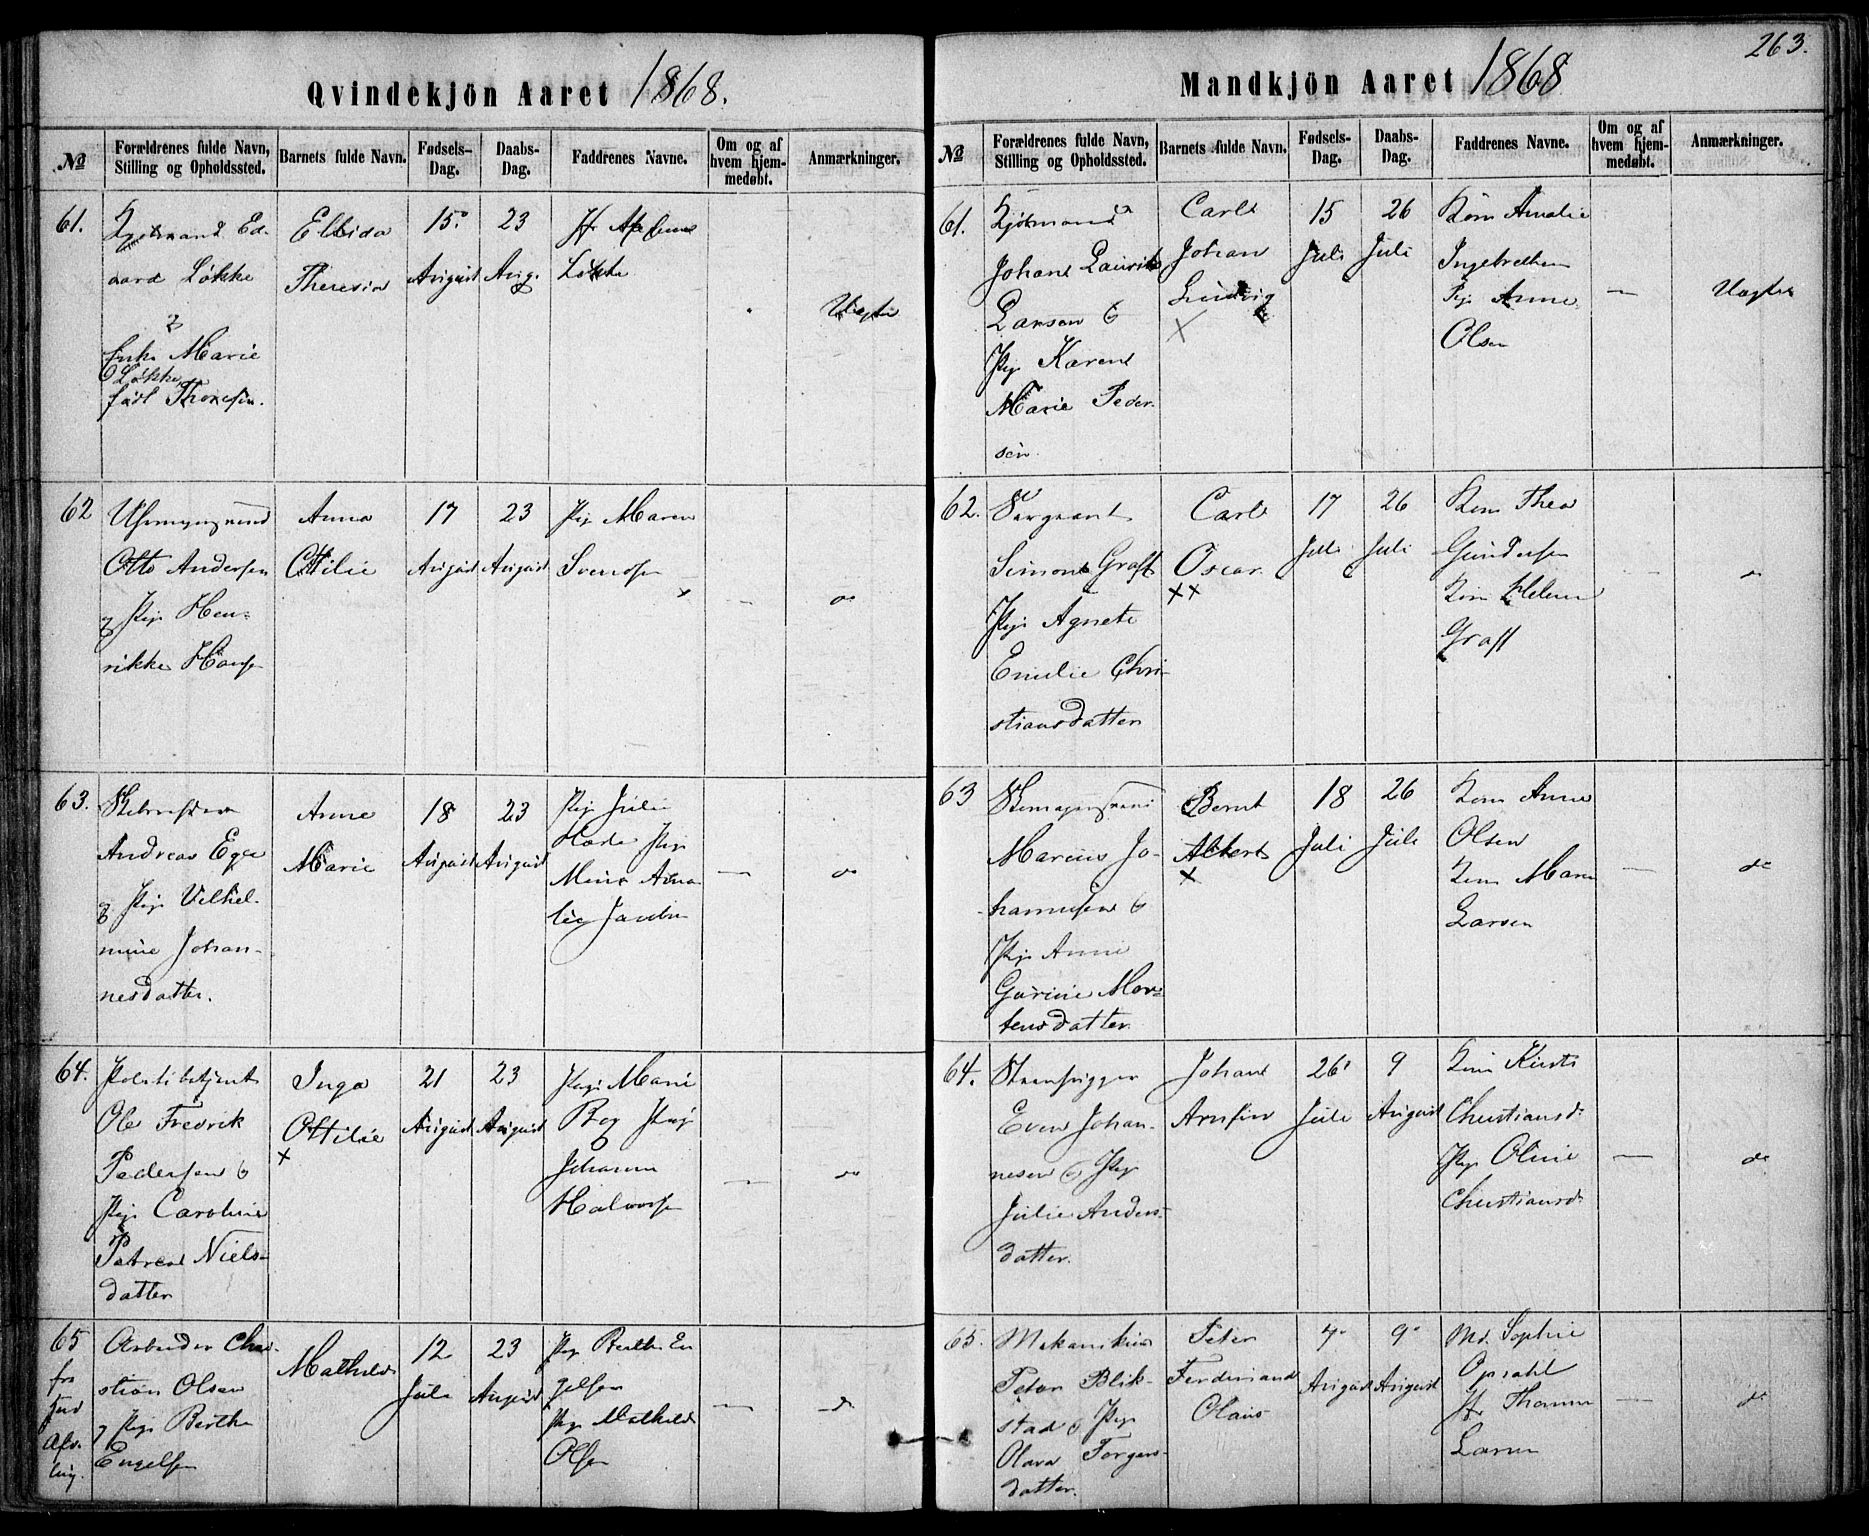 Qvindekjön Aaret 1868.
No
Forældrenes fulde Navn, Stilling og Opholdssted.
Barnets fulde Navn.
Fødsels-Dag.
Daabs-Dag.
Faddrenes Navne.
Om og af hvem hjemmedøbt.
Anmærkninger.
61.
Ed-
vard Løkke
Enke Marie
Løkke
født Thoresen.
Elvida
Theresia
15
August
23
Aug.
Løkke
Uægte
62
Otto Andersen
og Pige Hen-
rikke Hansen
Anna
Ottilie
17
August
23
August
Pige Maren
Svendsen
x
—
do
63.
Andreas Egee
og Pige Vilhel-
mine Johan-
nesdatter.
Anne
Marie
18
August
23
August
Pige Julie
Pige
Mina Ama-
lie Jacobsen
—
do
64.
Politibetjent
Ole Fredrik
Pedersen &
Pige Caroline
Petrea Niels-
datter
Inga
Ottilie
x
21
August
23
August
Pige Marie
Boy Pige
Johanna
Halvorsen
—
do
65
fra
Jul
Arbeider Chri-
stian Olsen
og Pige Berthe
Engelsen
Mathilde
12
Juli
23
August
Pige Berthe En-
gelsen
Pige Mathilde
Olsen
—
do
Mandkjön Aaret 1868
263.
No
Forældrenes fulde Navn, Stilling og Opholdssted.
Barnets fulde Navn.
Fødsels-Dag.
Daabs-Dag.
Faddrenes Navne.
Om og af hvem hjemmedøbt.
Anmærkninger.
61.
Sjømand
Johan Lauritz
Larsen &
Pige Karen
Marie Peder-
sen.
Carl
Johan
Ludvig
x
15
Juli
26
Juli
Kone Amalie
Ingebrethsen
Pige Anne
Olsen
—
Uægte
62.
Sergeant
Simon Graff
Pige Agnete
Emilie Chri-
stiansdatter
Carl
Oscar
xx
17
Juli
26
Juli
Kone Thea
Gundersen
Kone Helene
Graff
—
do
63
Marius Jo-
hannesen &
Pige Anne
Gurine Mor-
tensdatter
Bernt
Albert
x
18
Juli
26
Juli
Kone Anne
Olsen
Kone Maren
Larsen
—
do
64.
Even Johan-
nesen & Pige
Julie Anders-
datter.
Johan
Arnfin
26
Juli
9
August
Christiansd.
Pige Oline
Christiansd.
—
do
65.
Mekanikus
Peter Blik-
stad & Pige
Olava Torgers-
datter.
Peter
Ferdinand
Olaus
4
August
9
August
Md. Sophie
Opsahl
Larsen
—
do